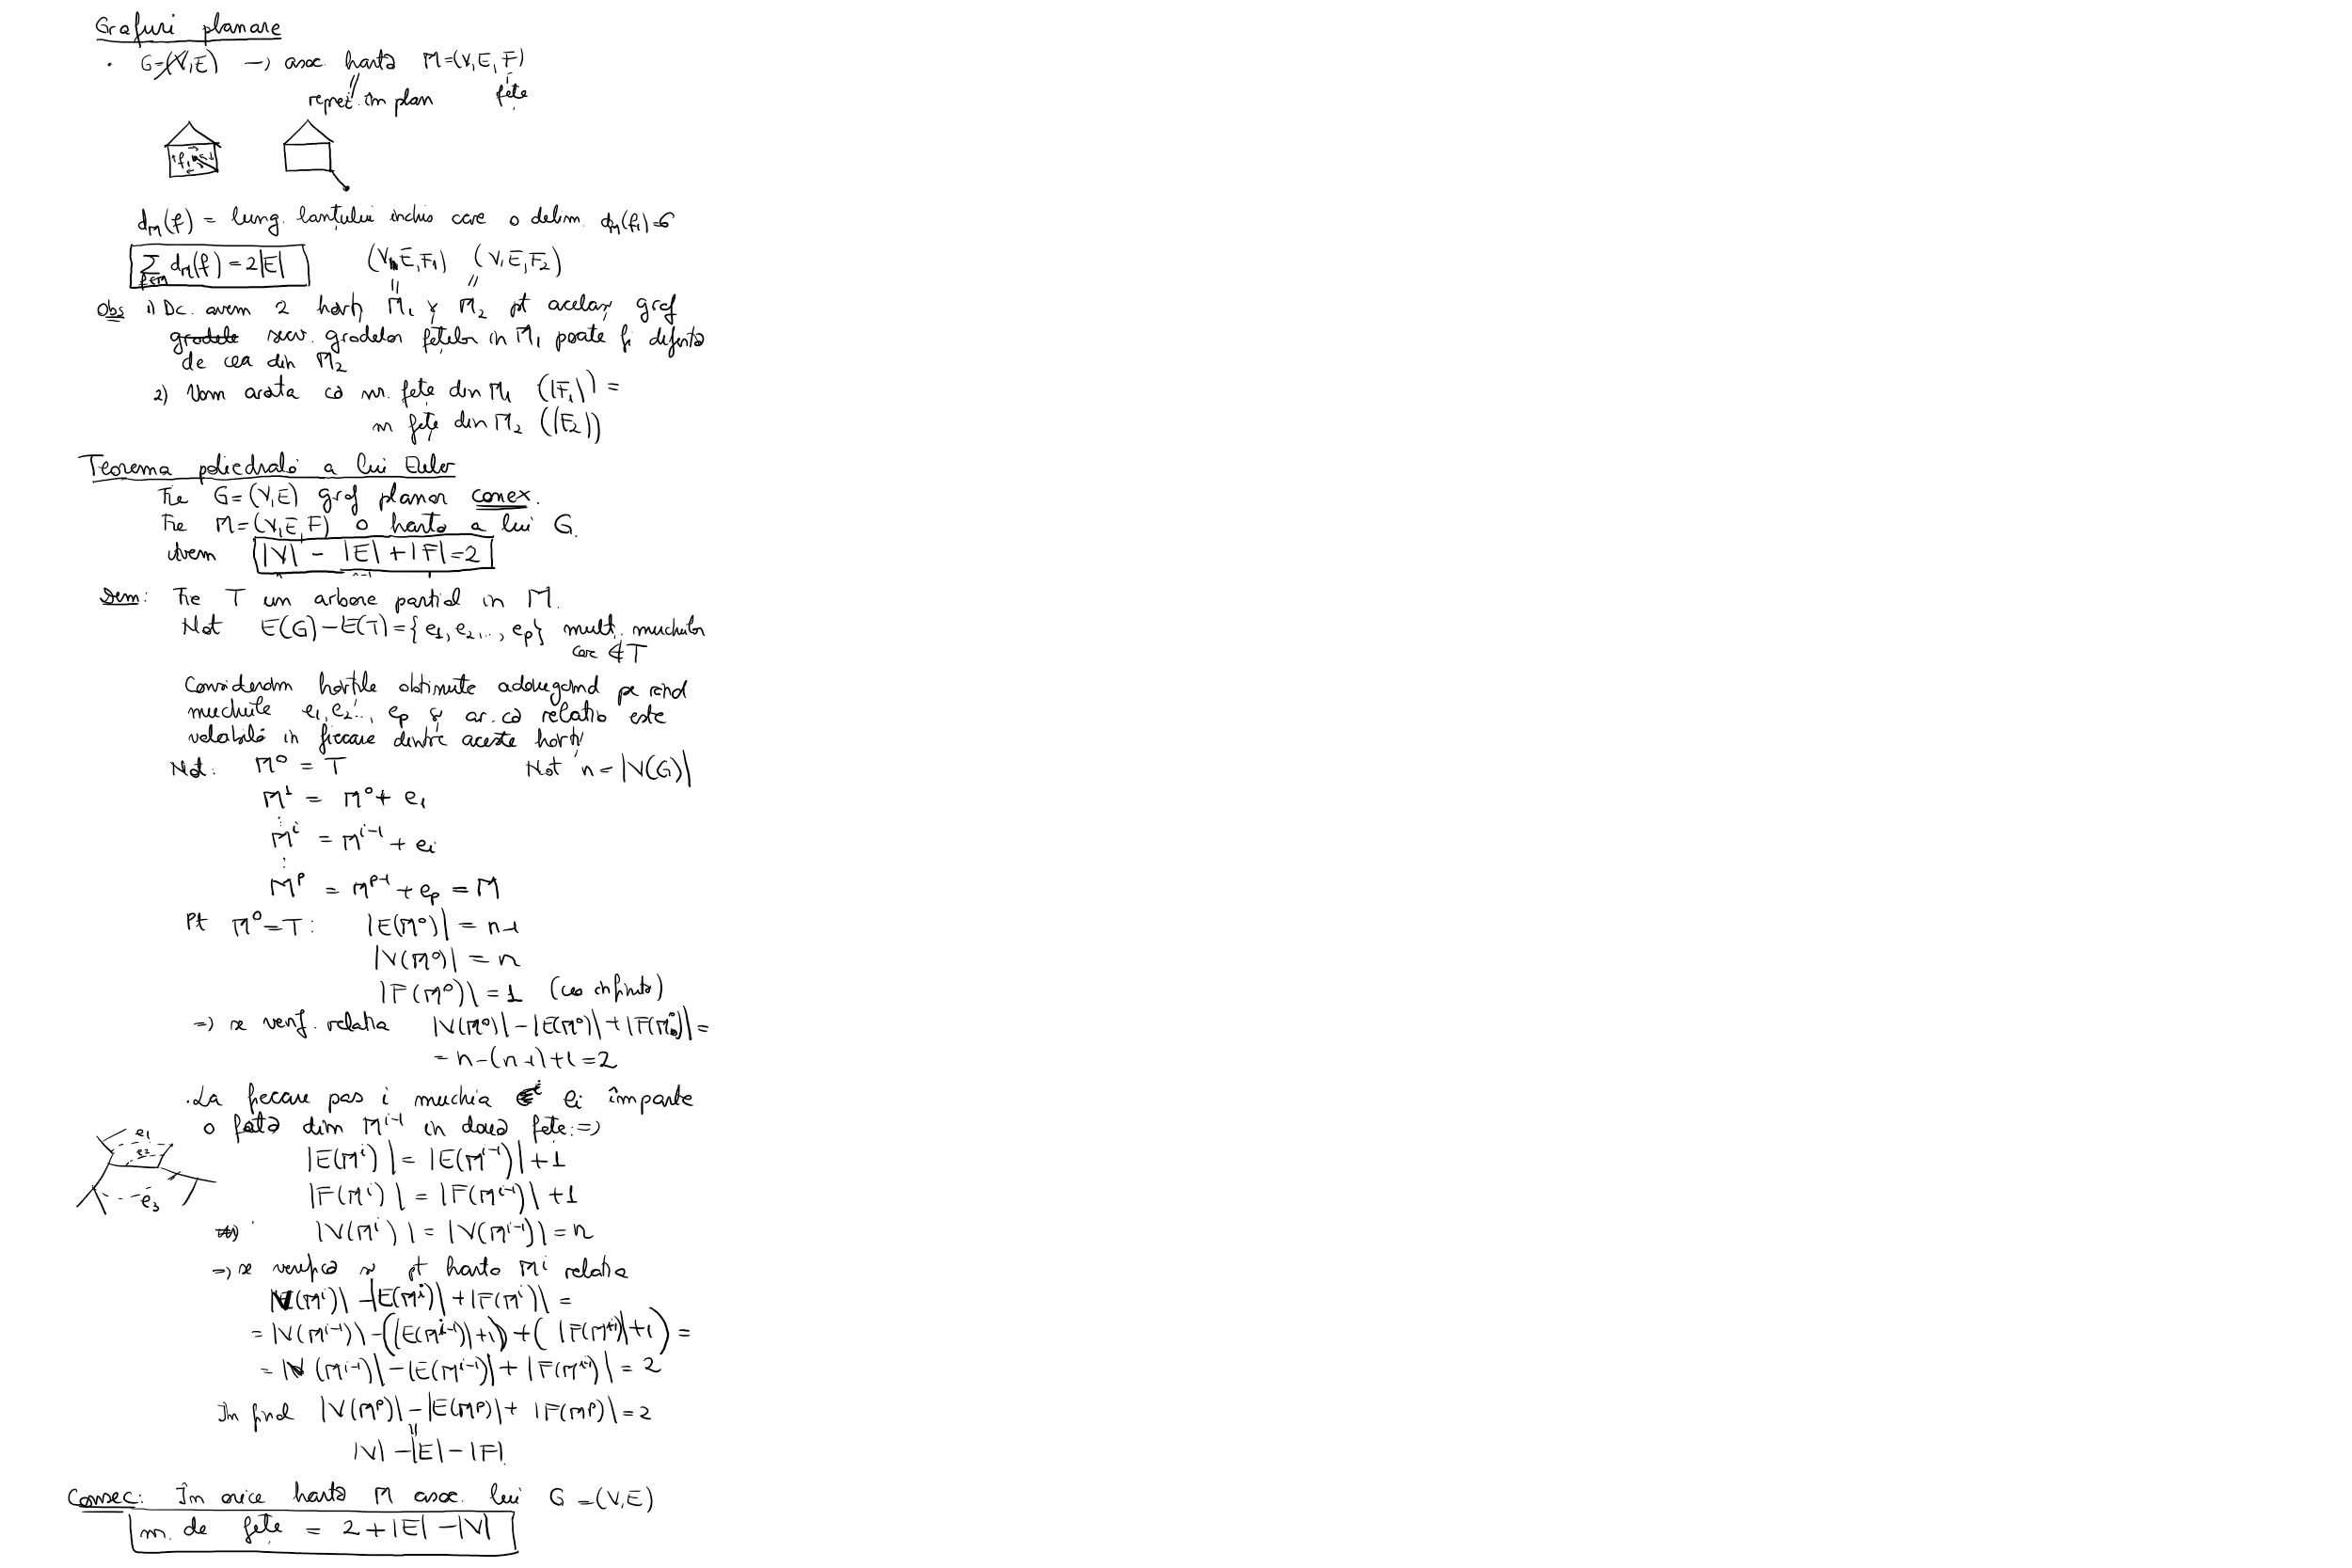 Grafuri planare
· G=(V,E) → asoc. hartă M=(V,E,F)
reprez. în plan fețe
f1
dM(f) = lung. lanțului închis care o delim. dM(f1)=6
∑ dM(f) = 2|E| (V,E,F1) (V,E,F2)
f∈M = =
Obs 1) Dc. avem 2 hărți M1 și M2 pt același graf
gradele secv. gradelor fețelor în M1 poate fi diferită
de cea din M2
2) Vom arăta că nr. fețe din M1 (|F1|) =
nr fețe din M2 (|F2|)
Teorema poliedrală a lui Euler
Fie G=(V,E) graf planar conex.
Fie M=(V,E,F) o hartă a lui G.
Avem |V| - |E| + |F| = 2
n n-1 1
Dem: Fie T un arbore parțial în M.
Not E(G)-E(T)={e1,e2,..,ep} mulț. muchiilor
care ∉T
Considerăm hărțile obținute adăugând pe rând
muchiile e1,e2,.., ep și ar. că relația este
valabilă în fiecare dintre aceste hărți
Not: M⁰ = T Not n=|V(G)|
M¹ = M⁰+ e1
⋮
Mⁱ = Mⁱ⁻¹ + ei
⋮
Mᵖ = Mᵖ⁻¹ + ep = M
Pt M⁰=T: |E(M⁰)| = n-1
|V(M⁰)| = n
|F(M⁰)| = 1 (cea infinită)
=) se verif. relația |V(M⁰)|-|E(M⁰)|+|F(M⁰)|=
= n-(n-1)+1=2
· La fiecare pas i muchia ei împarte
o față din Mⁱ⁻¹ în două fețe =)
e1
e2
e3
|E(Mⁱ)| = |E(Mⁱ⁻¹)| +1
|F(Mⁱ)| = |F(Mⁱ⁻¹)| +1
|V(Mⁱ)| = |V(Mⁱ⁻¹)| = n
=) se verifică și pt harta Mⁱ relația
|V(Mⁱ)| -|E(Mⁱ)| +|F(Mⁱ)| =
= |V(Mⁱ⁻¹)| -(|E(Mⁱ⁻¹)|+1) +( |F(Mⁱ⁻¹)|+1) =
= |V(Mⁱ⁻¹)| -|E(Mⁱ⁻¹)| + |F(Mⁱ⁻¹)| = 2
În final |V(Mᵖ)| -|E(Mᵖ)|+ |F(Mᵖ)| = 2
=
|V| -|E| -|F|
Consec: În orice hartă M asoc. lui G =(V,E)
nr. de fețe = 2+|E| -|V|